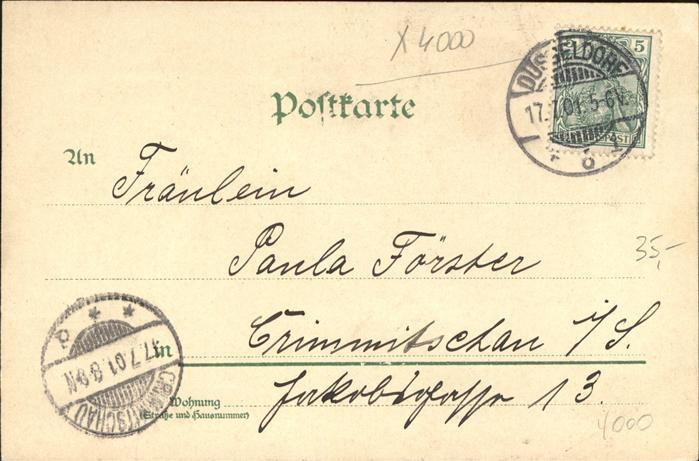 X 4000
5
DÜSSELDORF
17.7.01. 5-6N.
Postkarte
An Fräulein
Paula Förster
35,-
in Crimmitschau i/S.
17.7.01. 8-9N
CRIMMITSCHAU
Wohnung Jakobsgasse 13.
(Straße und Hausnummer)
4000